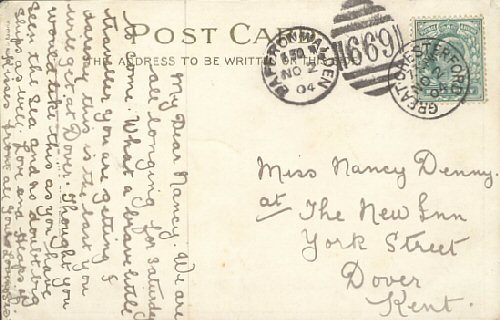 POST CARD
THE ADDRESS TO BE WRITTEN ON THIS
SAFFRON WALDEN
NO 2
04
669
GREAT CHESTERFORD
NO 2
04
My Dear Nancy. We are
all longing for Saturday
& home. What a brave little
traveller you are getting. I
daresay this is the last you
will get at Dover. Thought you
would like this as you have
seen the Sea and no doubt big
Ships as well. Love and
Kisses from all your loving
Miss Nancy Denny.
at The New Inn
York Street
Dover
Kent.